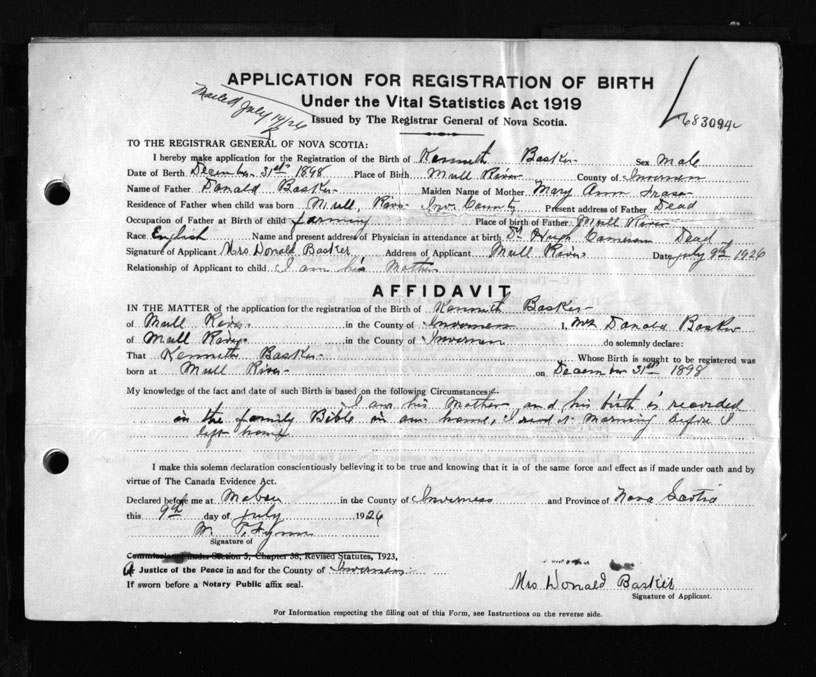 APPLICATION FOR REGISTRATION OF BIRTH
Mailed July 14/26
Under the Vital Statistics Act 1919
Issued by The Registrar General of Nova Scotia.
TO THE REGISTRAR GENERAL OF NOVA SCOTIA:
I hereby make application for the Registration of the Birth of Kenneth Basker Sex Male
Date of Birth December 31st 1898 Place of Birth Mull River County of Inverness
Name of Father Donald Basker Maiden Name of Mother Mary Ann Fraser
Residence of Father when child was born Mull River Inv. County Present address of Father Dead
Occupation of Father at Birth of child farming Place of birth of Father Mull River
Race English Name and present address of Physician in attendance at birth Dr Hugh Cameron Dead
Signature of Applicant Mrs Donald Basker Address of Applicant Mull River Date July 9th 1926
Relationship of Applicant to child I am his Mother
AFFIDAVIT
IN THE MATTER of the application for the registration of the Birth of Kenneth Basker
of Mull River in the County of Inverness I, Mrs Donald Basker
of Mull River in the County of Inverness do solemnly declare:
That Kenneth Basker Whose Birth is sought to be registered was
born at Mull River on December 31st 1898
My knowledge of the fact and date of such Birth is based on the following Circumstances
I am his Mother and his birth is recorded
in the family Bible in our home, I read it morning before I
left home
I make this solemn declaration conscientiously believing it to be true and knowing that it is of the same force and effect as if made under oath and by
virtue of The Canada Evidence Act.
Declared before me at Mabou in the County of Inverness and Province of Nova Scotia
this 9th day of July 1926
Signature of
Commissioner under Section 3, Chapter 38, Revised Statutes, 1923,
A Justice of the Peace in and for the County of Inverness
If sworn before a Notary Public affix seal.
Mrs Donald Basker
Signature of Applicant.
For Information respecting the filling out of this Form, see Instructions on the reverse side.